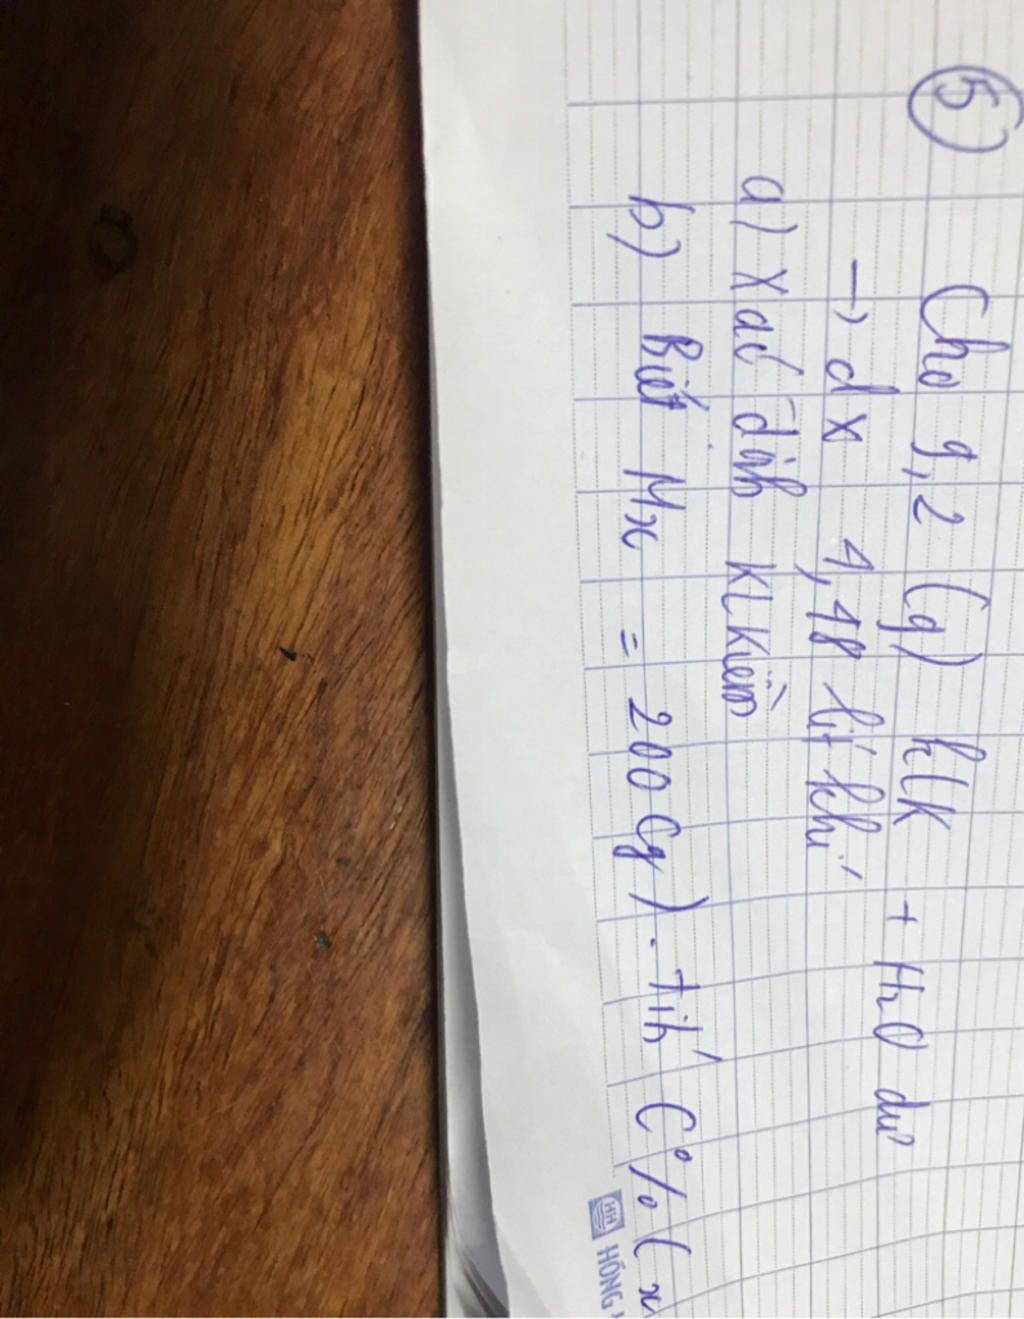 5
Cho 9,2 (g) KLK + H2O dư
→ d x 4,48 lít khí
a) Xác định KLKiềm
b) Biết Mx = 200 (g). Tính C% (x
HH HỒNG